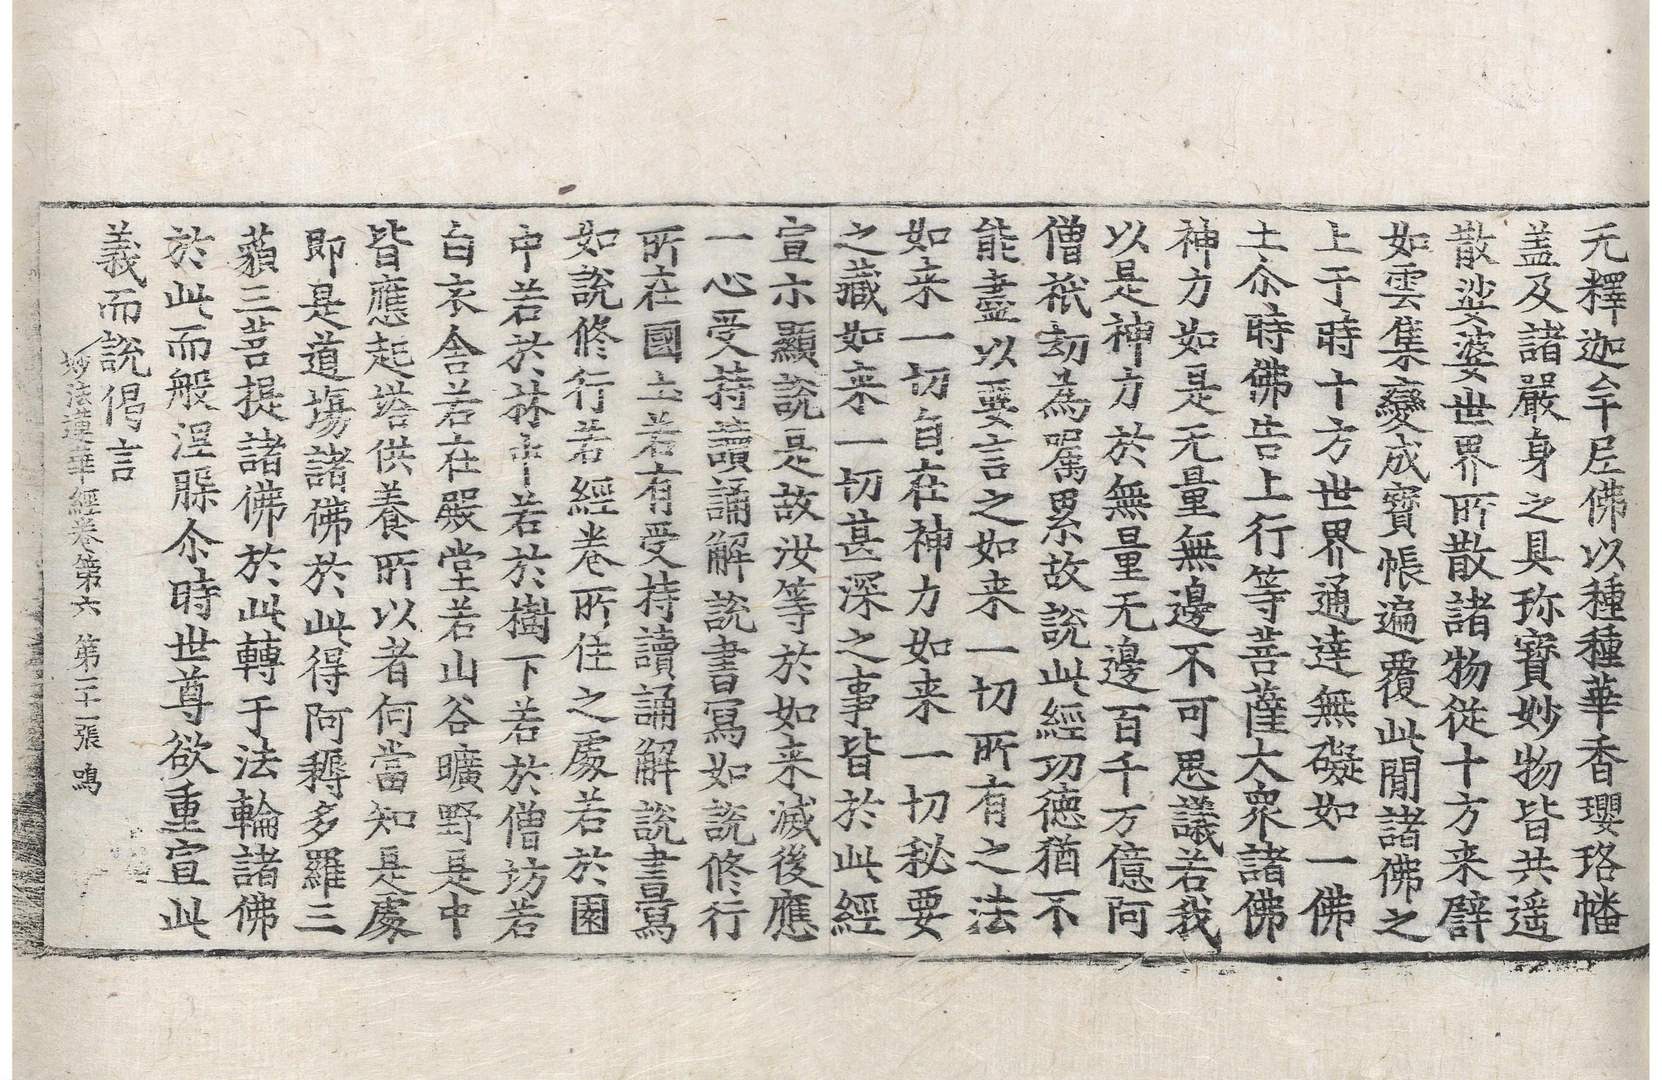 无釋迦牟尼佛以種種華香瓔珞幡
盖及諸嚴身之具珎寶妙物皆共遥
散娑婆世界所散諸物從十方来譬
如雲集變成寳帳遍覆此閒諸佛之
上于時十方世界通達無礙如一佛
土尒時佛告上行等菩薩大衆諸佛
神力如是无量無邊不可思議若我
以是神力於無量无邊百千万億阿
僧祇劫為嘱累故說此經功德猶不
能盡以要言之如来一切所有之法
如来一切自在神力如来一切秘要
之藏如来一切甚深之事皆於此經
宣示顯說是故汝等於如来滅後應
一心受持讀誦解說書寫如說修行
所在國土若有受持讀誦解說書寫
如說修行若經卷所住之處若於園
中若於林中若於樹下若於僧坊若
白衣舎若在殿堂若山谷曠野是中
皆應起塔供養所以者何當知是處
即是道場諸佛於此得阿耨多羅三
藐三菩提諸佛於此轉于法輪諸佛
於此而般涅槃尒時世尊欲重宣此
義而說偈言
妙法蓮華經卷第六 第二十一張 鳴